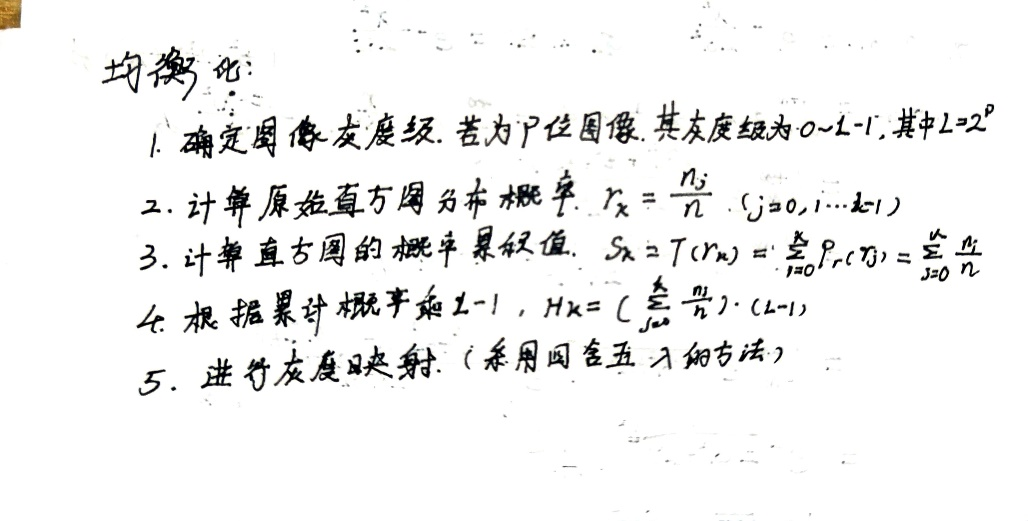 均衡化:
1. 确定图像灰度级. 若为P位图像. 其灰度级为0~L-1, 其中L=2^P
2. 计算原始直方图分布概率. r_k = n_j/n . (j=0,1…L-1)
3. 计算直方图的概率累积值. S_k = T(r_k) = Σ_{j=0}^{k} P_r(r_j) = Σ_{j=0}^{k} n_j/n
4. 根据累计概率乘L-1, H_k = (Σ_{j=0}^{k} n_j/n)·(L-1)
5. 进行灰度映射. (采用四舍五入的方法)